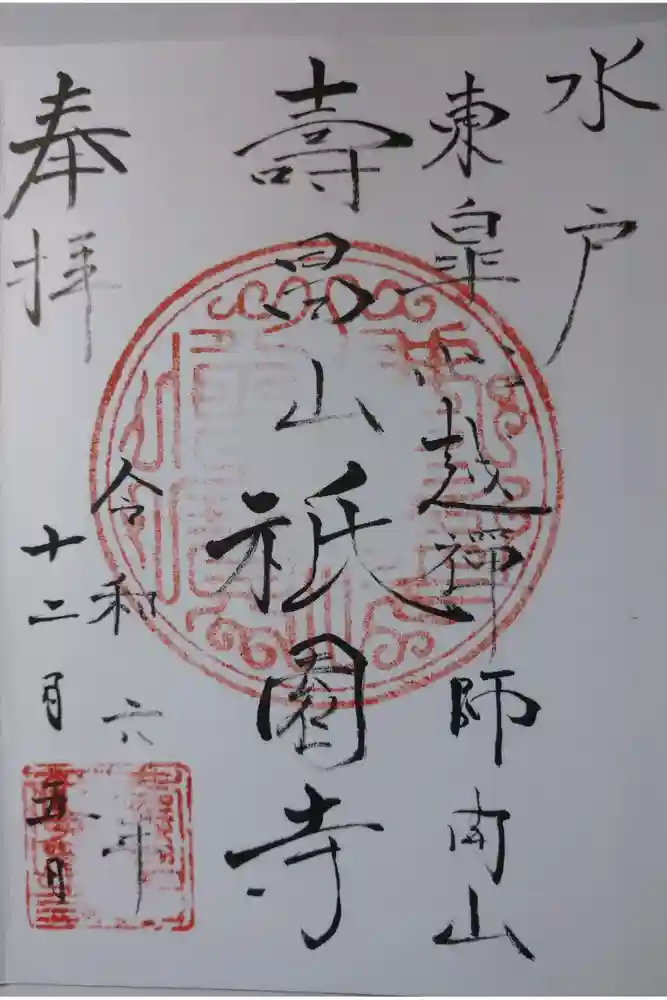 水戸
東皐心越禅師 南山
壽昌山 祇園寺
奉拝
令和六年
十二月五日